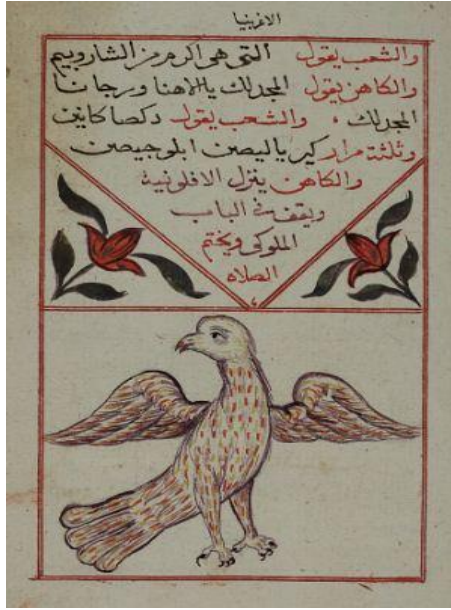 الاغربنيا
والشعب يقول التي هي اكرم من الشاروبيم
والكاهن يقول المجد لك يا الاهنا ورجانا
المجد لك ، والشعب يقول دكصا كانين
وثلثة مرار كير ياليصن ابلوجيصن
والكاهن ينزل الافلونية
ويقف في الباب
الملوكي ويختم
الصلاه